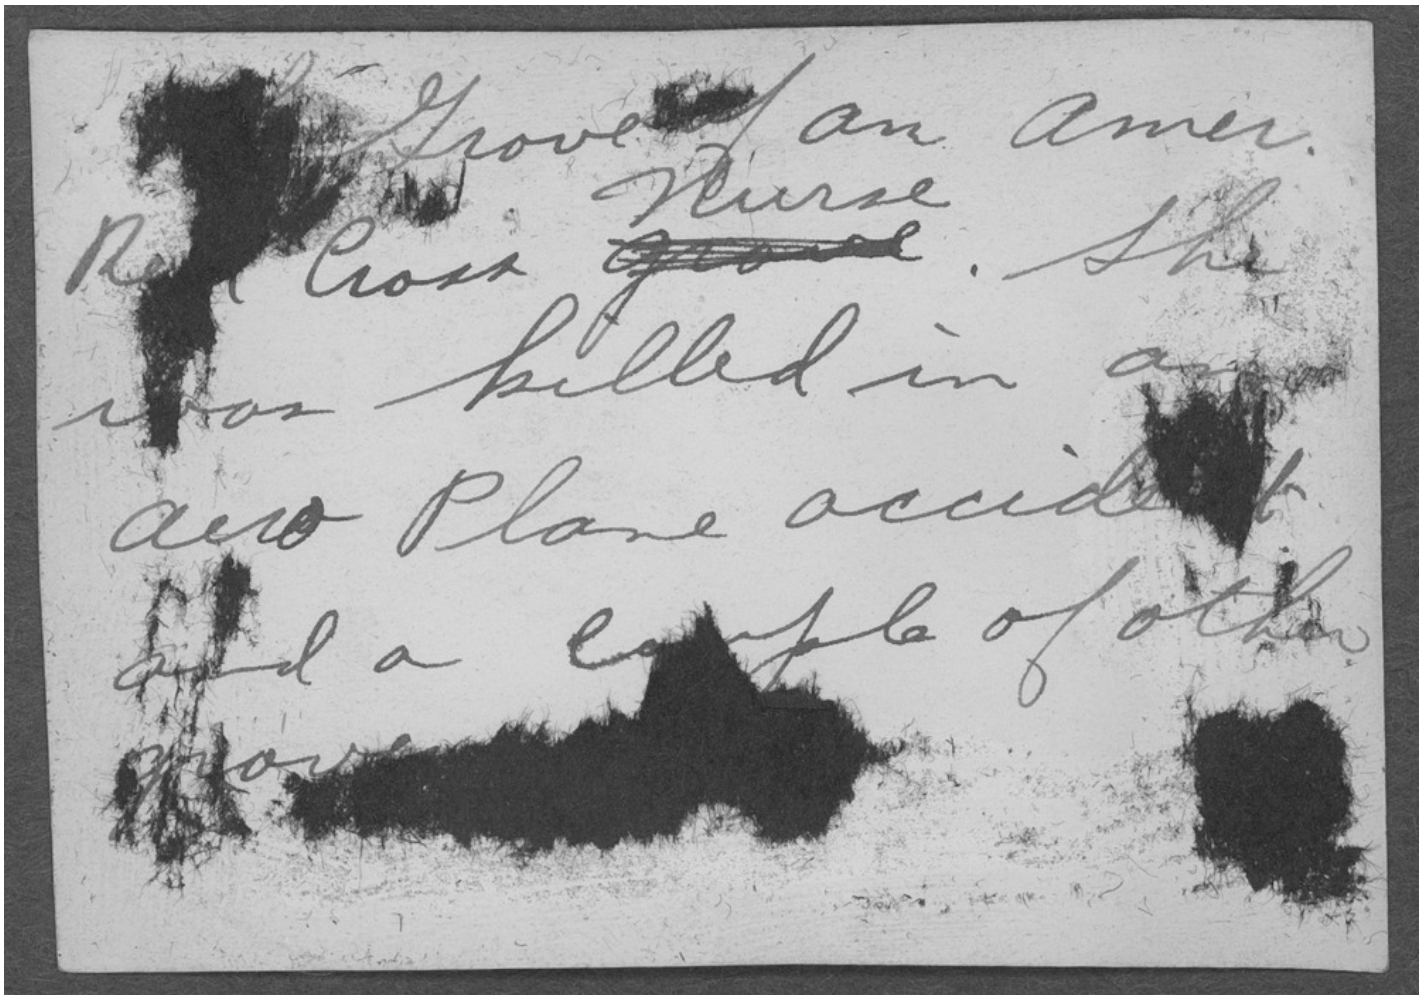 Grove of an Amer.
Nurse
Red Cross grove . She
was killed in an
aero Plane accident
and a couple of other
grove